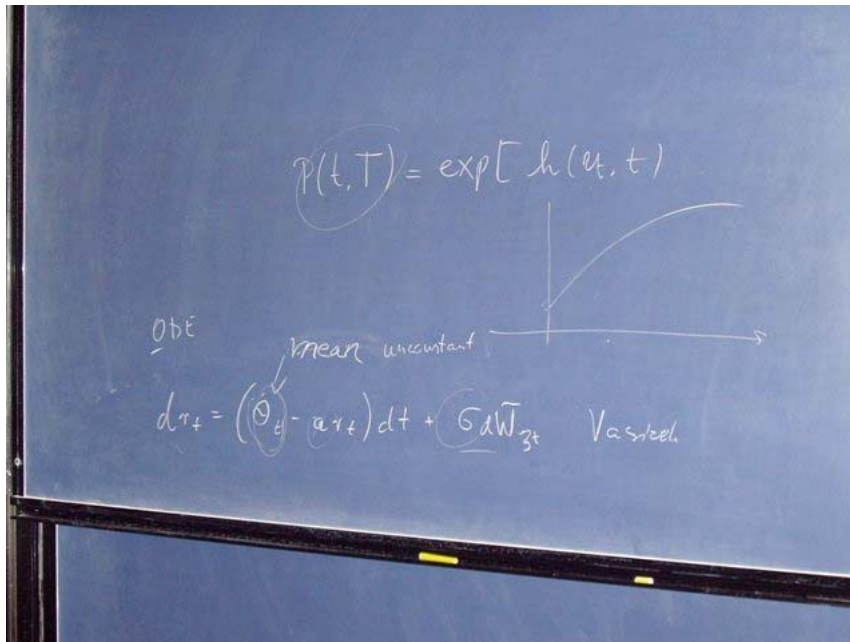 P(t,T) = exp[ h(r_t, t)
ODE
mean unconstant
dr_t = (θ_t - a r_t) dt + σ dW̃_3t Vasicek